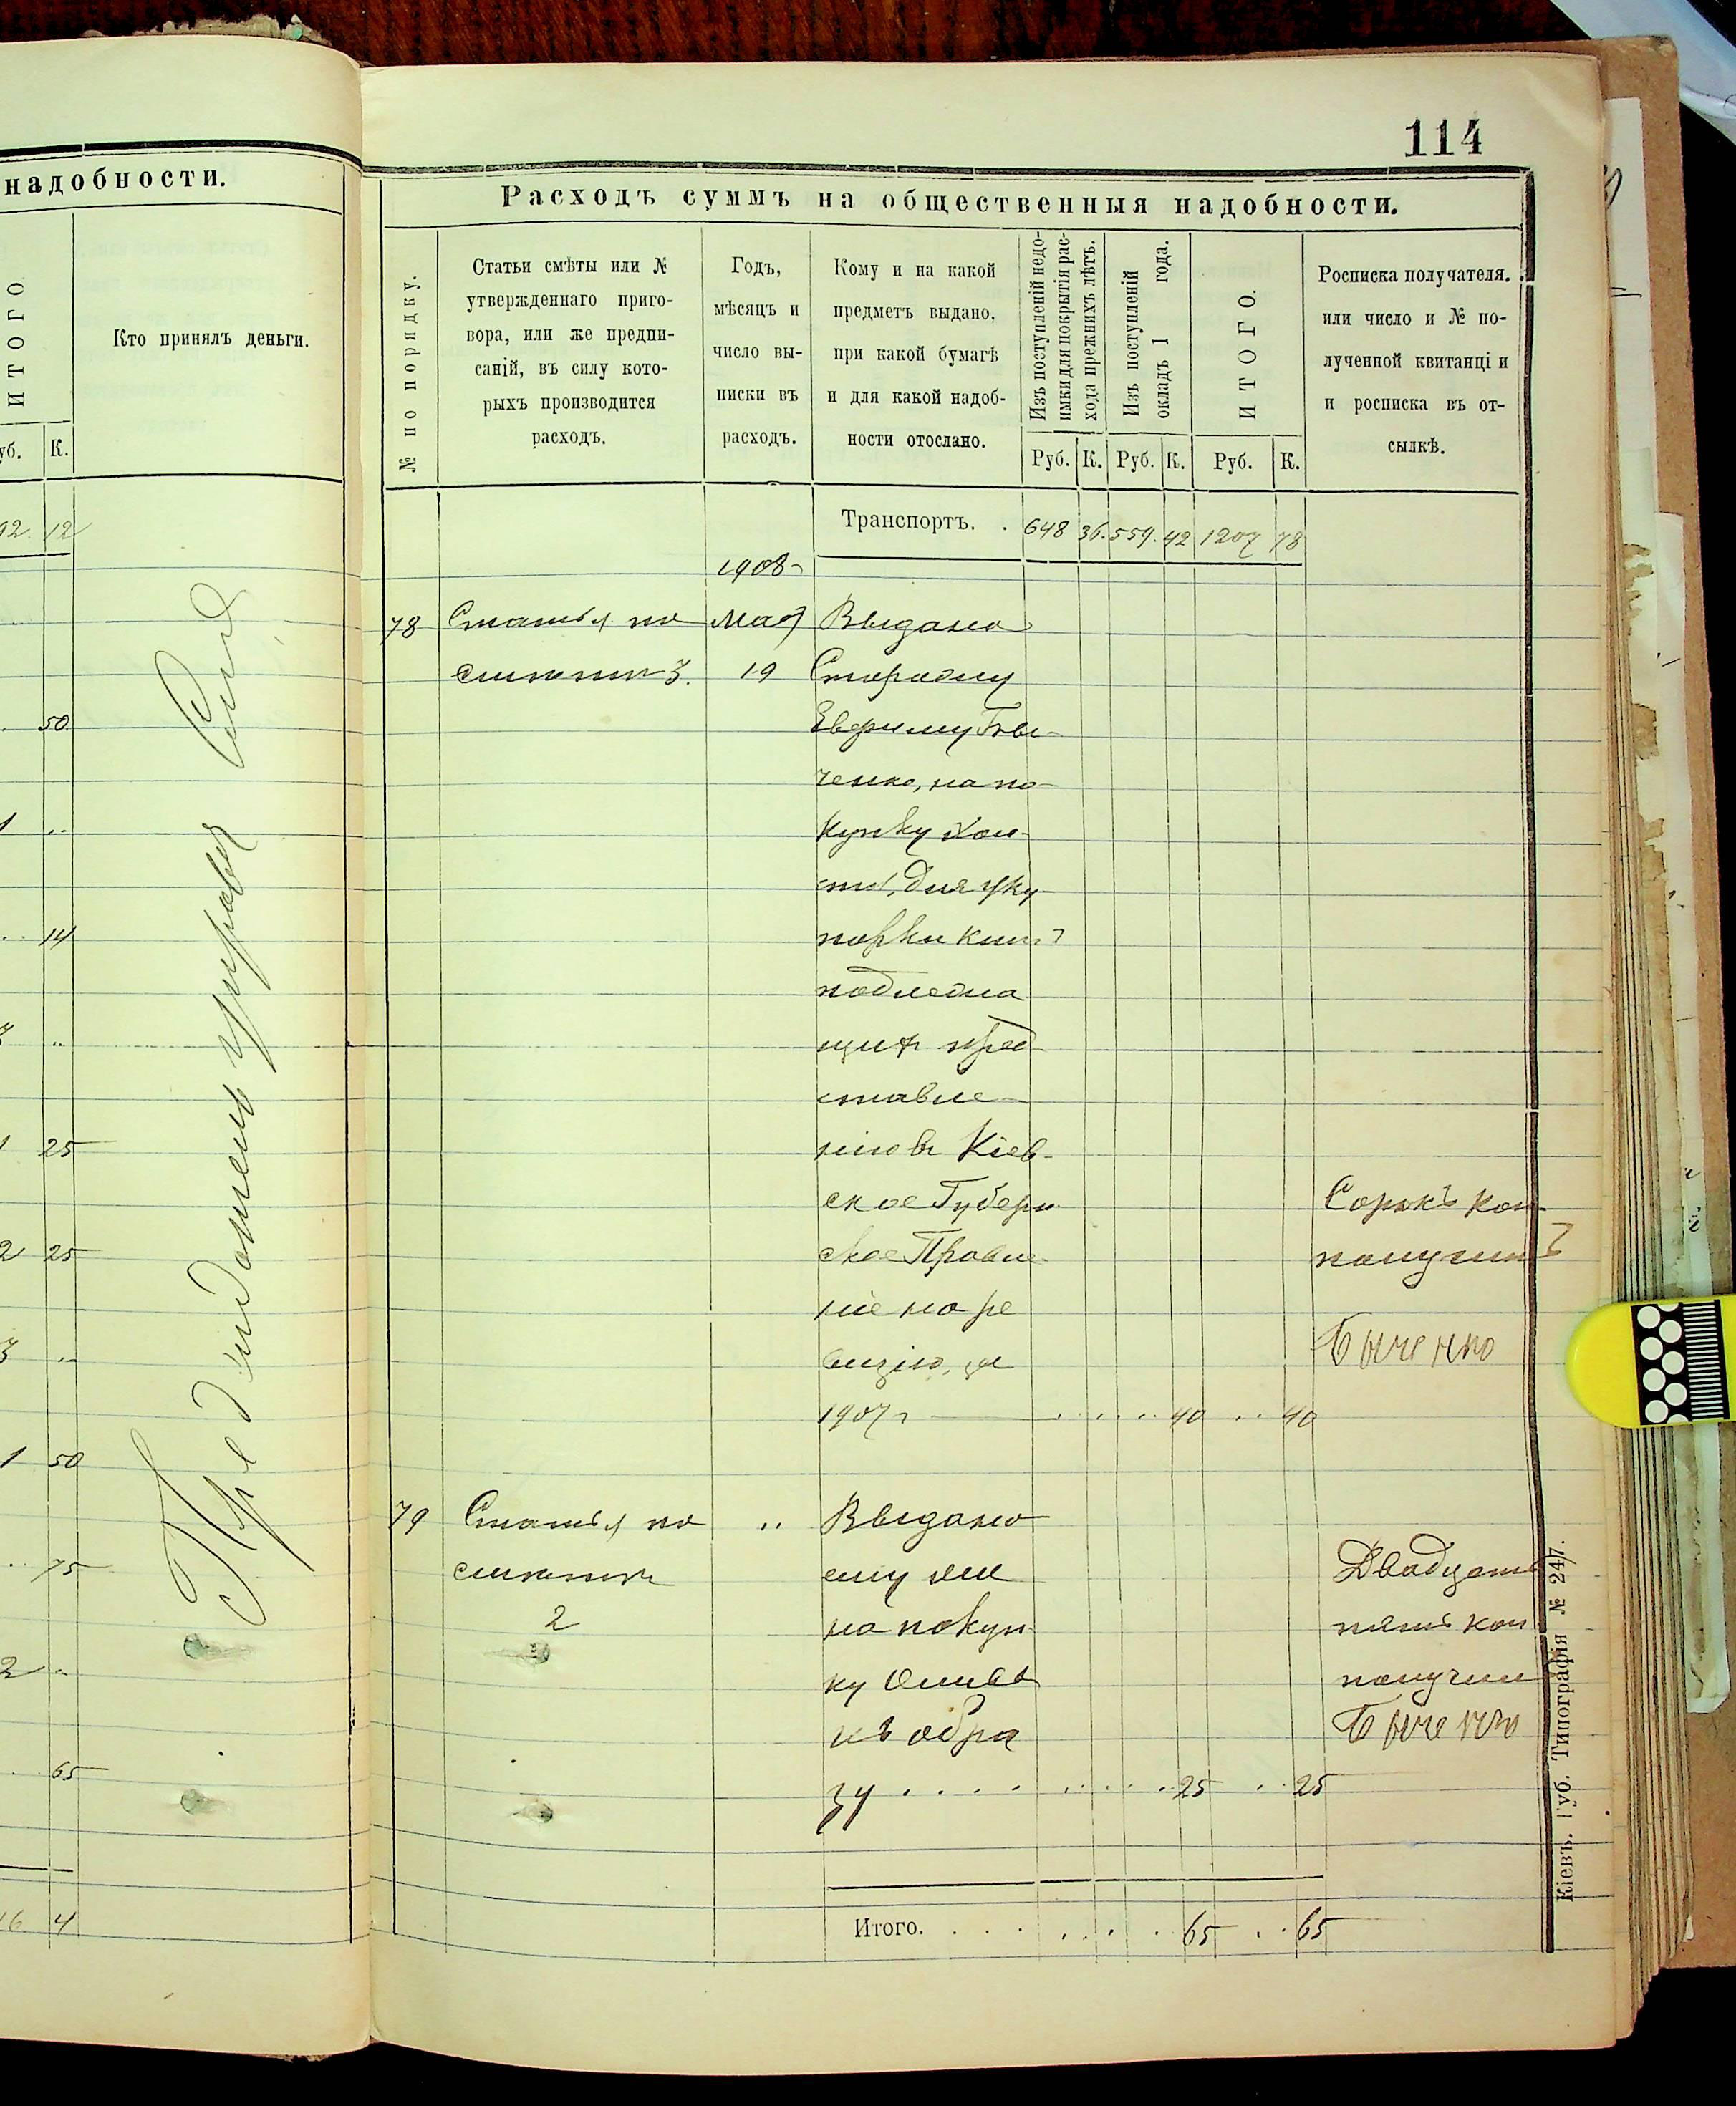 надобности.
ИТОГО
Кто принялъ деньги.
уб. К.
92. 12
50
1 ..
14
..
1 25
2 25
3 ..
1 50
75
2 "
65
16 4
114
Расходъ суммъ на общественныя надобности.
№ по порядку.
Статьи смѣты или №
утвержденнаго приго-
вора, или же предпи-
саній, въ силу кото-
рыхъ производится
расходъ.
Годъ,
мѣсяцъ и
число вы-
писки въ
расходъ.
Кому и на какой
предметъ выдано,
при какой бумагѣ
и для какой надоб-
ности отослано.
Изъ поступленій недо-
имки для покрытія рас-
хода прежнихъ лѣтъ.
Изъ поступленій
окладъ 1 года.
ИТОГО.
Росписка получателя.
или число и № по-
лученной квитанціи
и росписка въ от-
сылкѣ.
Руб. К. Руб. К. Руб. К.
Транспортъ. . 648 36. 559. 42 1207 78
1908 г
78 Статья по Мая Выдано
смѣтѣ 3. 19 Сторожу
Бы-
ченко, на по-
купку хол-
ста, для уку
порки книгъ
подлежа
щихъ пред
ставле-
нію въ Кіев-
ское Губерн
ское Правле-
ніе на ре
визію, за
1907 г . . . . 40 .. 40
Сорокъ коп
получилъ
Быченко
79 Статья по .. Выдано
смѣтѣ ему же
2 на покуп-
ку Оливы
къ обра
зу . . . . . . . . 25 . . 25
Двадцать
пять коп
получилъ
Быченко
Итого. . . . . . . 65 . . 65
Кіевъ. Губ. Типографія № 247.